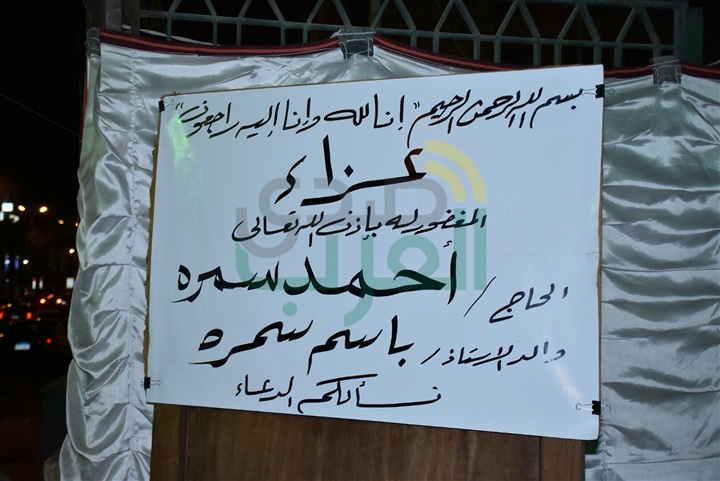 بسم الله الرحمن الرحيم "إنا لله وإنا إليه راجعون"
عزاء
المغفور له بإذن الله تعالى
الحاج / أحمد سمره
والد الاستاذ / باسم سمره
نسألكم الدعاء
صدى
العرب